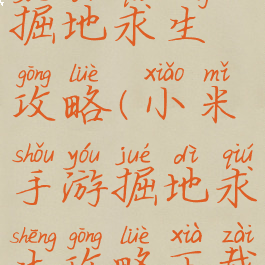 掘地求生
gōng lüè xiǎo mǐ
攻略(小米
shǒu yóu jué dì qiú
手游掘地求
shēng gōng lüè xià zài
生攻略下载